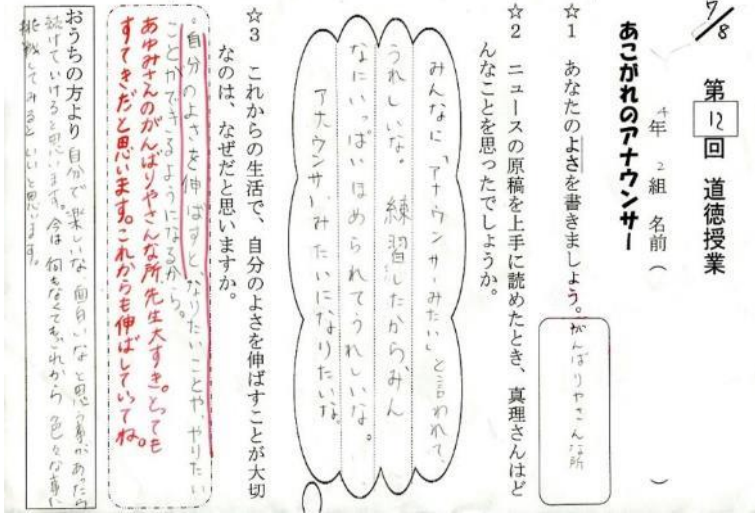 7/8
第12回 道徳授業
4年 2組 名前( )
あこがれのアナウンサー
☆1 あなたのよさを書きましょう。
がんばりやさんな所
☆2 ニュースの原稿を上手に読めたとき、真理さんはど
んなことを思ったでしょうか。
みんなに「アナウンサーみたい」と言われて、
うれしいな。 練習したからみん
なにいっぱいほめられてうれしいな。
アナウンサーみたいになりたいな。
☆3 これからの生活で、自分のよさを伸ばすことが大切
なのは、なぜだと思いますか。
自分のよさを伸ばすと、なりたいことや、やりたい
ことができるようになるから。
あゆみさんのがんばりやさんな所、先生大すき。とっても
すてきだと思います。これからも伸ばしていってね。
おうちの方より 自分で楽しいな、面白いなと思う事があったら
続けていけると思います。今は何もなくても、これから色々な事に
挑戦してみるといいと思います。